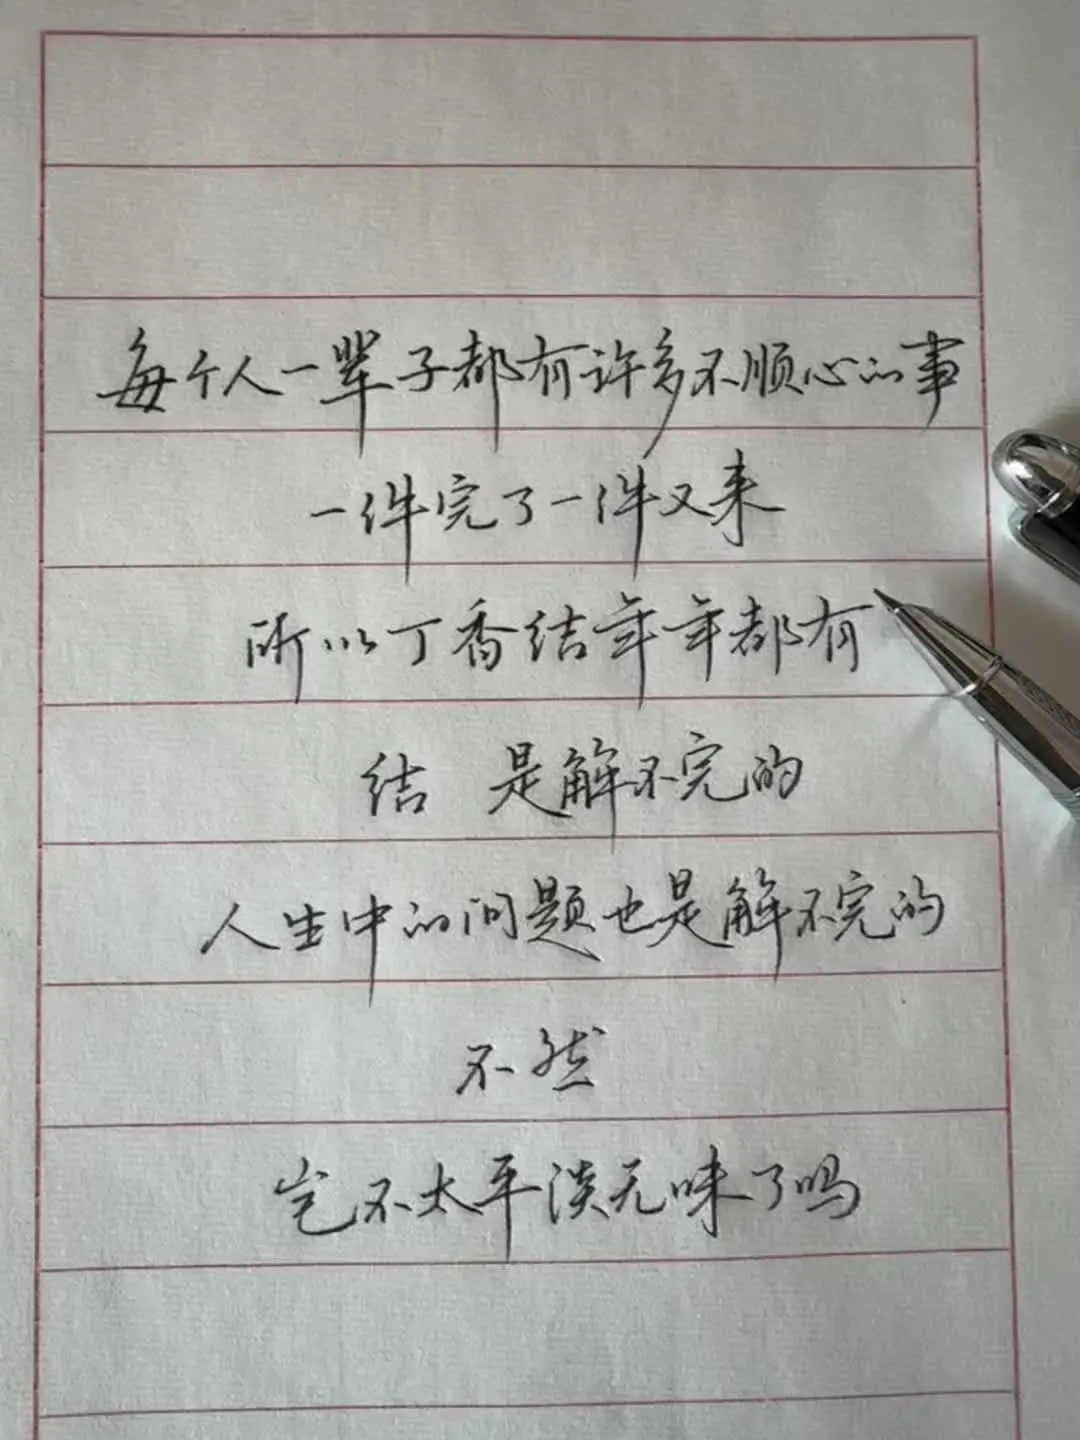 每个人一辈子都有许多不顺心的事
一件完了一件又来
所以丁香结年年都有
结 是解不完的
人生中的问题也是解不完的
不然
岂不太平淡无味了吗